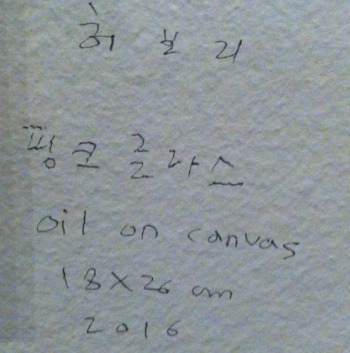 허보리
핑크 글라스
oil on canvas
18X26 cm
2016